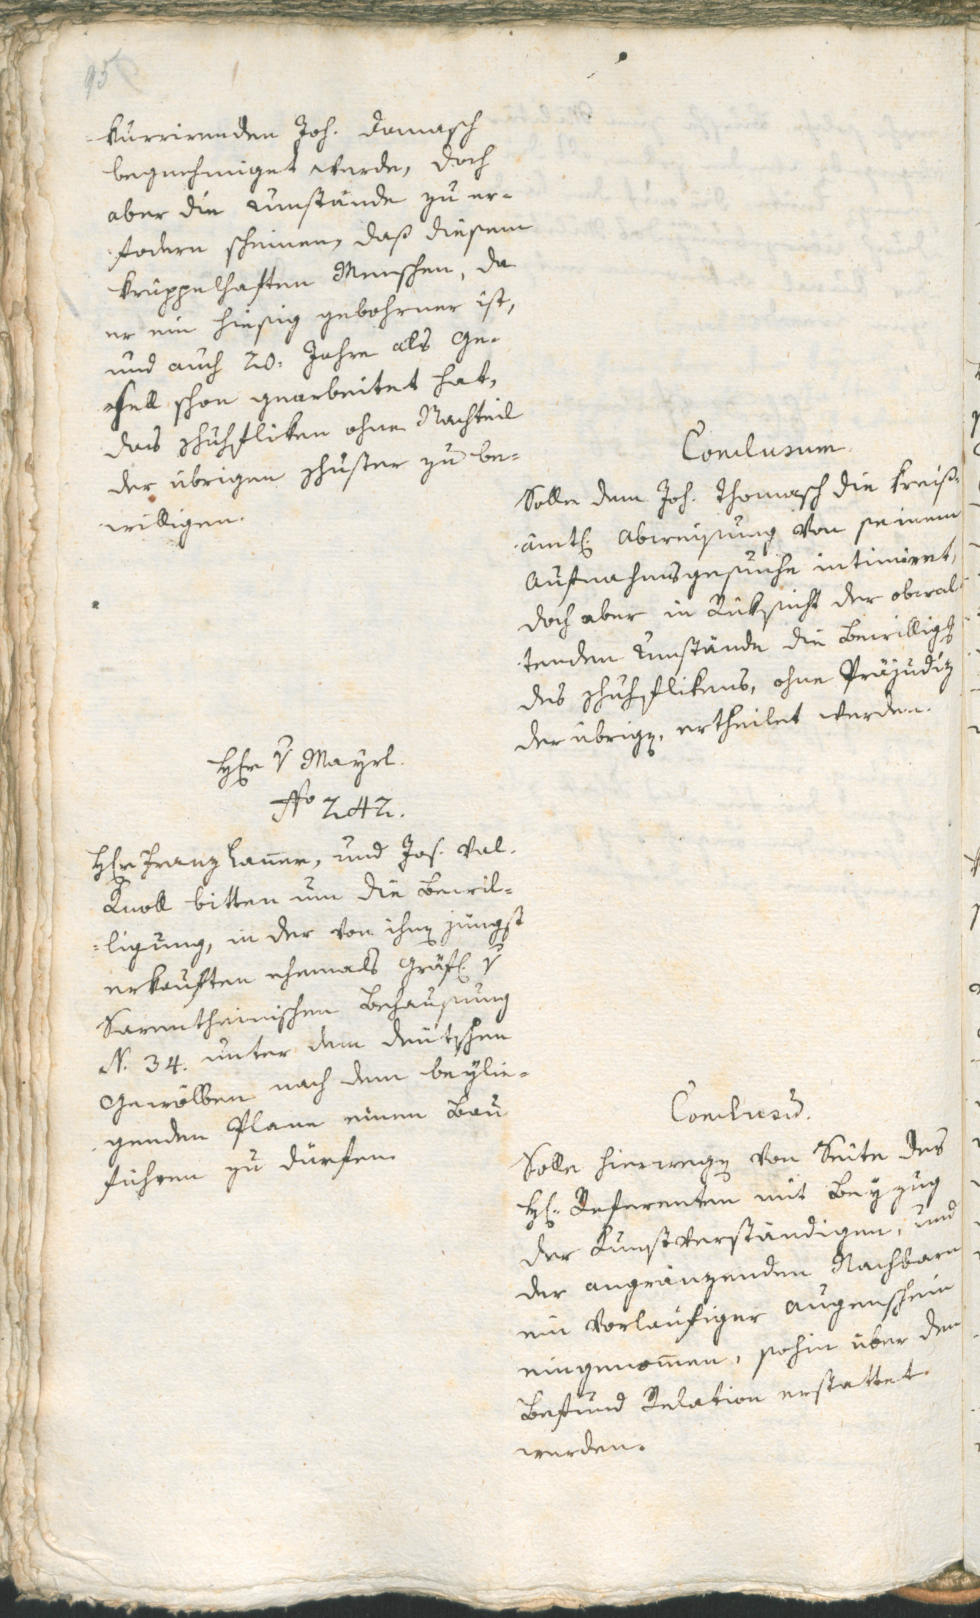 95
kurrirenden Joh. Damasch
begnehmiget werde, doch
aber die Umstände zu er-
fodern scheinen, daß diesem
krüppelhaften Menschen, da
er ein hiesig gebohrner ist,
und auch 20. Jahre als Ge-
sell schon gearbeitet hat,
das Schuhfliken ohne Nachteil
der übrigen Schuster zu be-
willigen.
Conclusum.
Solle dem Joh. Thomasch die kreis-
ämtl. Abweisung von seinem
Aufnahmsgesuche intimiret,
doch aber in Rüksicht der obwal-
tenden Umstände die Bewilligg
des Schuhflikens, ohne Präjudiz
der übrigen, ertheilet werden.
Hr. v Mayrl.
No 242.
Hr Franz Hauer, und Jos. Val.
Knoll bitten um die Bewil-
ligung, in der von ihnen jüngst
erkauften ehemals Gräfl. v
Sarentheinischen Behausung
N. 34. unter dem deutschen
Gewölben nach dem beylie-
genden Plane einen Bau
führen zu dürfen.
Conclusū.
Solle hierwegen von Seite des
H. Referenten mit Beyzug
der Kunstverständigen, und
der angränzenden Nachbarn
ein vorläufiger Augenschein
eingenom̄en, sohin über den
Befund Relation erstattet
werden.